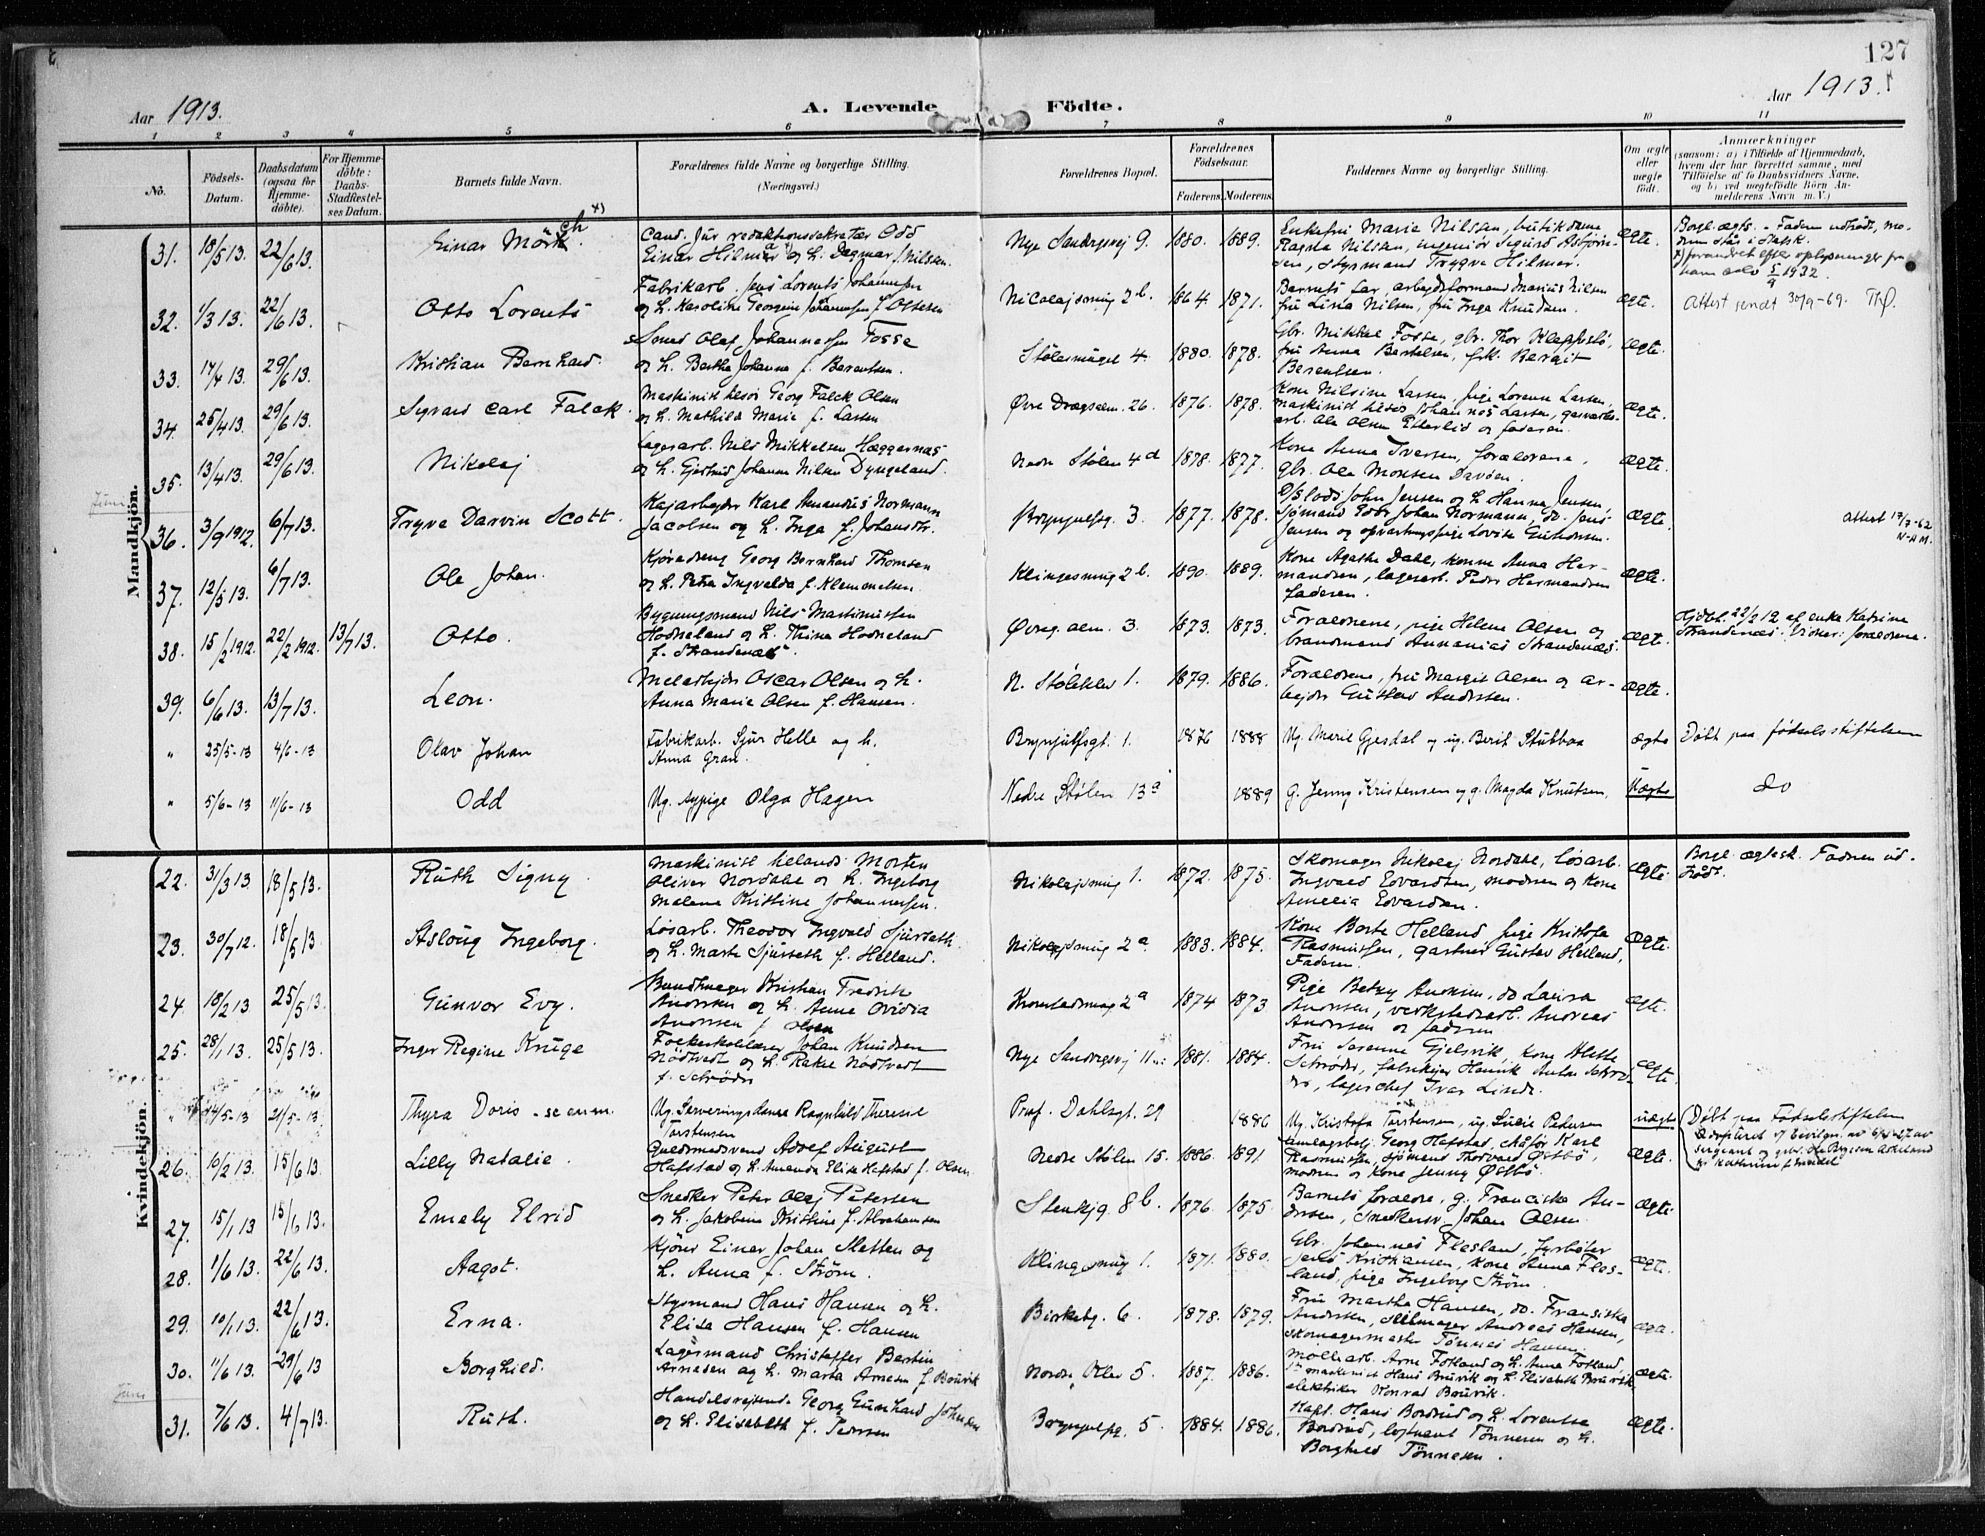 127
Aar 1913.
A. Levende Födte.
Aar 1913.
1 2 3 4 5 6 7 8 9 10 11
No.
Födsels-Datum.
Daabsdatum (ogsaa for Hjemme-döbte).
For Hjemme-döbte: Daabs-Stadfestel-ses Datum.
Barnets fulde Navn.
Forældrenes fulde Navne og borgerlige Stilling. (Næringsvei.)
Forældrenes Bopæl.
Forældrenes Födselsaar.
Faderens. Moderens.
Faddernes Navne og borgerlige Stilling.
Om ægte eller uægte födt.
Anmerkninger
(saasom: a) i Tilfælde af Hjemmedaab, hvem der har forrettet samme, med Tilföielse af to Daabsvidners Navne, og b) ved uægtefödte Börn An-melderens Navn m. V.)
Mandkjön.
31. 18/5 13. 22/6 13. Einar Mörch x)
Cand. jur redaktionssekretær Odd
Einar Hilmar og h. Dagmar f. Nilsen.
Nye Sandvigsvej 9. 1880. 1889.
Enkefru Marie Nilsen, butikdame
Ragna Nilsen, ingeniør Sigurd Asbjørn-
sen, styrmand Trygve Hilmar.
ægte.
Borgl. ægts. - Faderen udtrådt, mo-
x) forandret efter oplysninger fra
1932
32. 1/3 13. 22/6 13. Otto Lorents
Fabrikarb. Jens Lorents Johannesen
og h. Karoline Georgine Johannesen f. Ottesen
Nicolajsmug 2b. 1864. 1871.
Barnets far, arbejdsformand Marius Nilsen
fru Lina Nilsen, fru Inga Knudsen.
ægte.
Attest sendt 30/9-69.
33. 17/4 13. 29/6 13. Kristian Bernhard.
Smed Olaf Johannesen Fosse
og h. Bertha Johanna f. Berentsen.
Stølesmuget 4. 1880. 1878.
Gbr. Mikkel Fosse, gbr. Thor Kleppestø,
fru Anna Bertelsen, frk. Bergit
Berentsen.
ægte.
34. 25/4 13. 29/6 13. Sigvard Carl Falck.
Maskinist tilsøs Georg Falck Olsen
og h. Mathilde Marie f. Larsen
Øvre Dragsalm. 26. 1876. 1878.
Kone Nilsine Larsen, pige Lorense Larsen,
maskinist tilsøs Johannes Larsen, gasverks-
arb. Ole Olsen Etterlid og faderen.
ægte.
35. 13/4 13. 29/6 13. Nikolaj
Lagerarb. Nils Mikkelsen Hæggernæs
og h. Gjertrud Johanne Nilsen Dyngeland.
Nedre Stølen 4d 1878. 1877.
Kone Anna Iversen, forældrene,
gbr. Ole Monsen Davøen.
ægte.
Juni
36. 3/9 1912. 6/7 13. Trygve Darvin Scott.
Kajarbejder Karl Amandus Normann
Jacobsen og h. Inga f. Johansen.
Brynjulfsg. 3. 1877. 1878.
D/S lods John Jensen og h. Hanna Jensen,
sjømand Edv. Johan Normann, do. Jens
Jensen og opvartningspige Lovise Gundersen.
ægte.
Attest 17/7-62
N-AM.
37. 12/5 13. 6/7 13. Ole Johan.
Kjøredreng Georg Bernhard Thomsen
og h. Petra Ingvalda f. Klemmetsen.
Klingesmug 2b. 1890. 1889.
Kone Agathe Dahl, konne Anna Her-
mandsen, lagerarb. Peder Hermandsen
faderen.
ægte.
38. 15/2 1912. 22/2 1912. 13/7 13. Otto.
Bygningsmand Nils Martinussen
Hodneland og h. Thina Hodneland
f. Strandenæs.
Øvreg. alm. 3. 1873. 1873.
Forældrene, pige Helene Olsen og
brandmand Annanias Strandenæs.
ægte.
Hjdbt. 22/2 12 af enke Katrine
Strandenæs. Vidner: forældrene.
39. 6/6 13. 13/7 13. Leon.
Melarbejder Oscar Olsen og h.
Anna Marie Olsen f. Hansen.
N. Støleklev 1. 1879. 1886.
Forældrene, fru Margit Olsen og ar-
bejder Gustav Andersen.
ægte.
" 25/5-13 4/6-13 Olav Johan
Fabrikarb. Sjur Helle og h.
Anna Gran.
Brynjulfsgt. 1. 1876 1888
Ug. Marie Gjesdal og ug. Berit Stubbaa
ægte
Døbt paa fødselsstiftelsen
" 5/6-13 11/6-13 Odd
Ug. sypige Olga Hagen
Nedre Stølen 13a 1889
g. Jenny Kristensen og g. Magda Knutsen.
Uægte
do
Kvindekjön.
22. 31/3 13. 18/5 13. Ruth Signy.
Maskinist tillands Morten
Oliver Nordahl og h. Ingeborg
Malene Kristine Johannessen.
Nikolajsmug 1. 1872. 1875.
Skomager Nikolaj Nordahl, løsarb.
Ingvald Edvardsen, modren og kone
Amelia Edvardsen.
ægte.
Borgl. ægtesk. Fadren ud-
trådt.
23. 30/7 12. 18/5 13. Aslaug Ingeborg.
Løsarb. Theodor Ingvald Sjursæth
og h. Marta Sjurseth f. Helland.
Nikolajsmug 2a. 1883. 1884.
Kone Berte Helland, pige Kristofa
Rasmussen, gartner Gustav Helland,
Faderen.
ægte.
24. 18/2 13. 25/5 13. Gunvor Evy.
Bundtmager Kristian Fredrik
Andersen og h. Anna Ovidia
Andersen f. Olsen
Korntadsmug 2a 1874 1873
Pige Betzy Andersen, do Laura
Andersen, verkstedsarb. Andreas
Andersen og faderen.
ægte.
25. 28/1 13. 25/5 13. Inger Regine Kruge
Folkeskolelærer Johan Knudsen
Nødtvedt og h. Rakel Nødtvedt
f. Schrøder
Nye Sandvigsvej 11 1881. 1884.
Fru Susanne Gjelsvik, kone Alette
Schrøder, fabrikejer Henrik Anton Schrø-
der, lagerchef Ivar Linde.
ægte.
" 14/5-13 21/5-13 Thyra Doris - se anm.
Ug. Serveringsdame Ragnhild Therese
Torstensen
Prof. Dahlsgt. 29 1886
Ug. Kristofa Torstensen, ug. Lucie Pedersen
uægte
Døbt paa Fødselsstiftelsen
Adopteret
sergeant
26. 10/2 13. 15/6 13. Lilly Natalie.
Guldsmedsvend Adolf August
Hafstad og h. Amanda Elise Hafstad f. Olsen
Nedre Stølen 15. 1886. 1891
Anlægsbetj. Georg Hafstad, chafør Karl
Rasmussen, sjømand Thorvald Østbø,
modren og kone Jenny Østbø.
ægte.
27. 15/1 13 15/6 13. Emely Elvid
Snedker Peter Olaj Petersen
og h. Jakobine Kristine f. Abrahamsen
Stenkjg. 8b. 1876. 1875.
Barnets forældre, g. Franciska An-
dersen, Snedkersv. Johan Olsen.
ægte.
28. 1/6 13. 22/6 13. Aagot.
Kjører Einar Johan Sletten og
h. Anna f. Strøm.
Klingesmug 1. 1871. 1880.
Gbr. Johannes Flesland, fyrbøter
Jens Kristiansen, kone Anna Fles-
land, pige Ingeborg Strøm.
ægte.
29. 10/1 13. 22/6 13. Erna.
Styrmand Hans Hansen og h.
Elisa Hansen f. Hansen
Birkebg. 6. 1878. 1879.
Fru Martha Hansen, do. Fransiska
Andersen, seilmager Andreas Hansen,
skomagermester Tønnes Hansen.
ægte.
30. 11/6 13. 29/6 13 Borghild.
Lagermand Christoffer Bertin
Arnesen og h. Marta Arnesen f. Bruvik
Nordre Klev 5. 1887. 1886.
Møllearb. Arne Fotland og h. Anna Fotland,
maskinist Hans Bruvik og h. Elisabeth Bruvik,
elektriker Konrad Bruvik.
ægte.
Juni
31. 7/6 13. 4/7 13. Ruth.
Handelsrejsend. Georg Gunhard Johnsen
og h. Elisabeth f. Iversen
Brynjulfsg. 5. 1884. 1886.
Kapt. Hans Bordrud og h. Lorentse
Bordrud, løjtnant Tønnesen og h.
Borghild Tønnesen.
ægte.